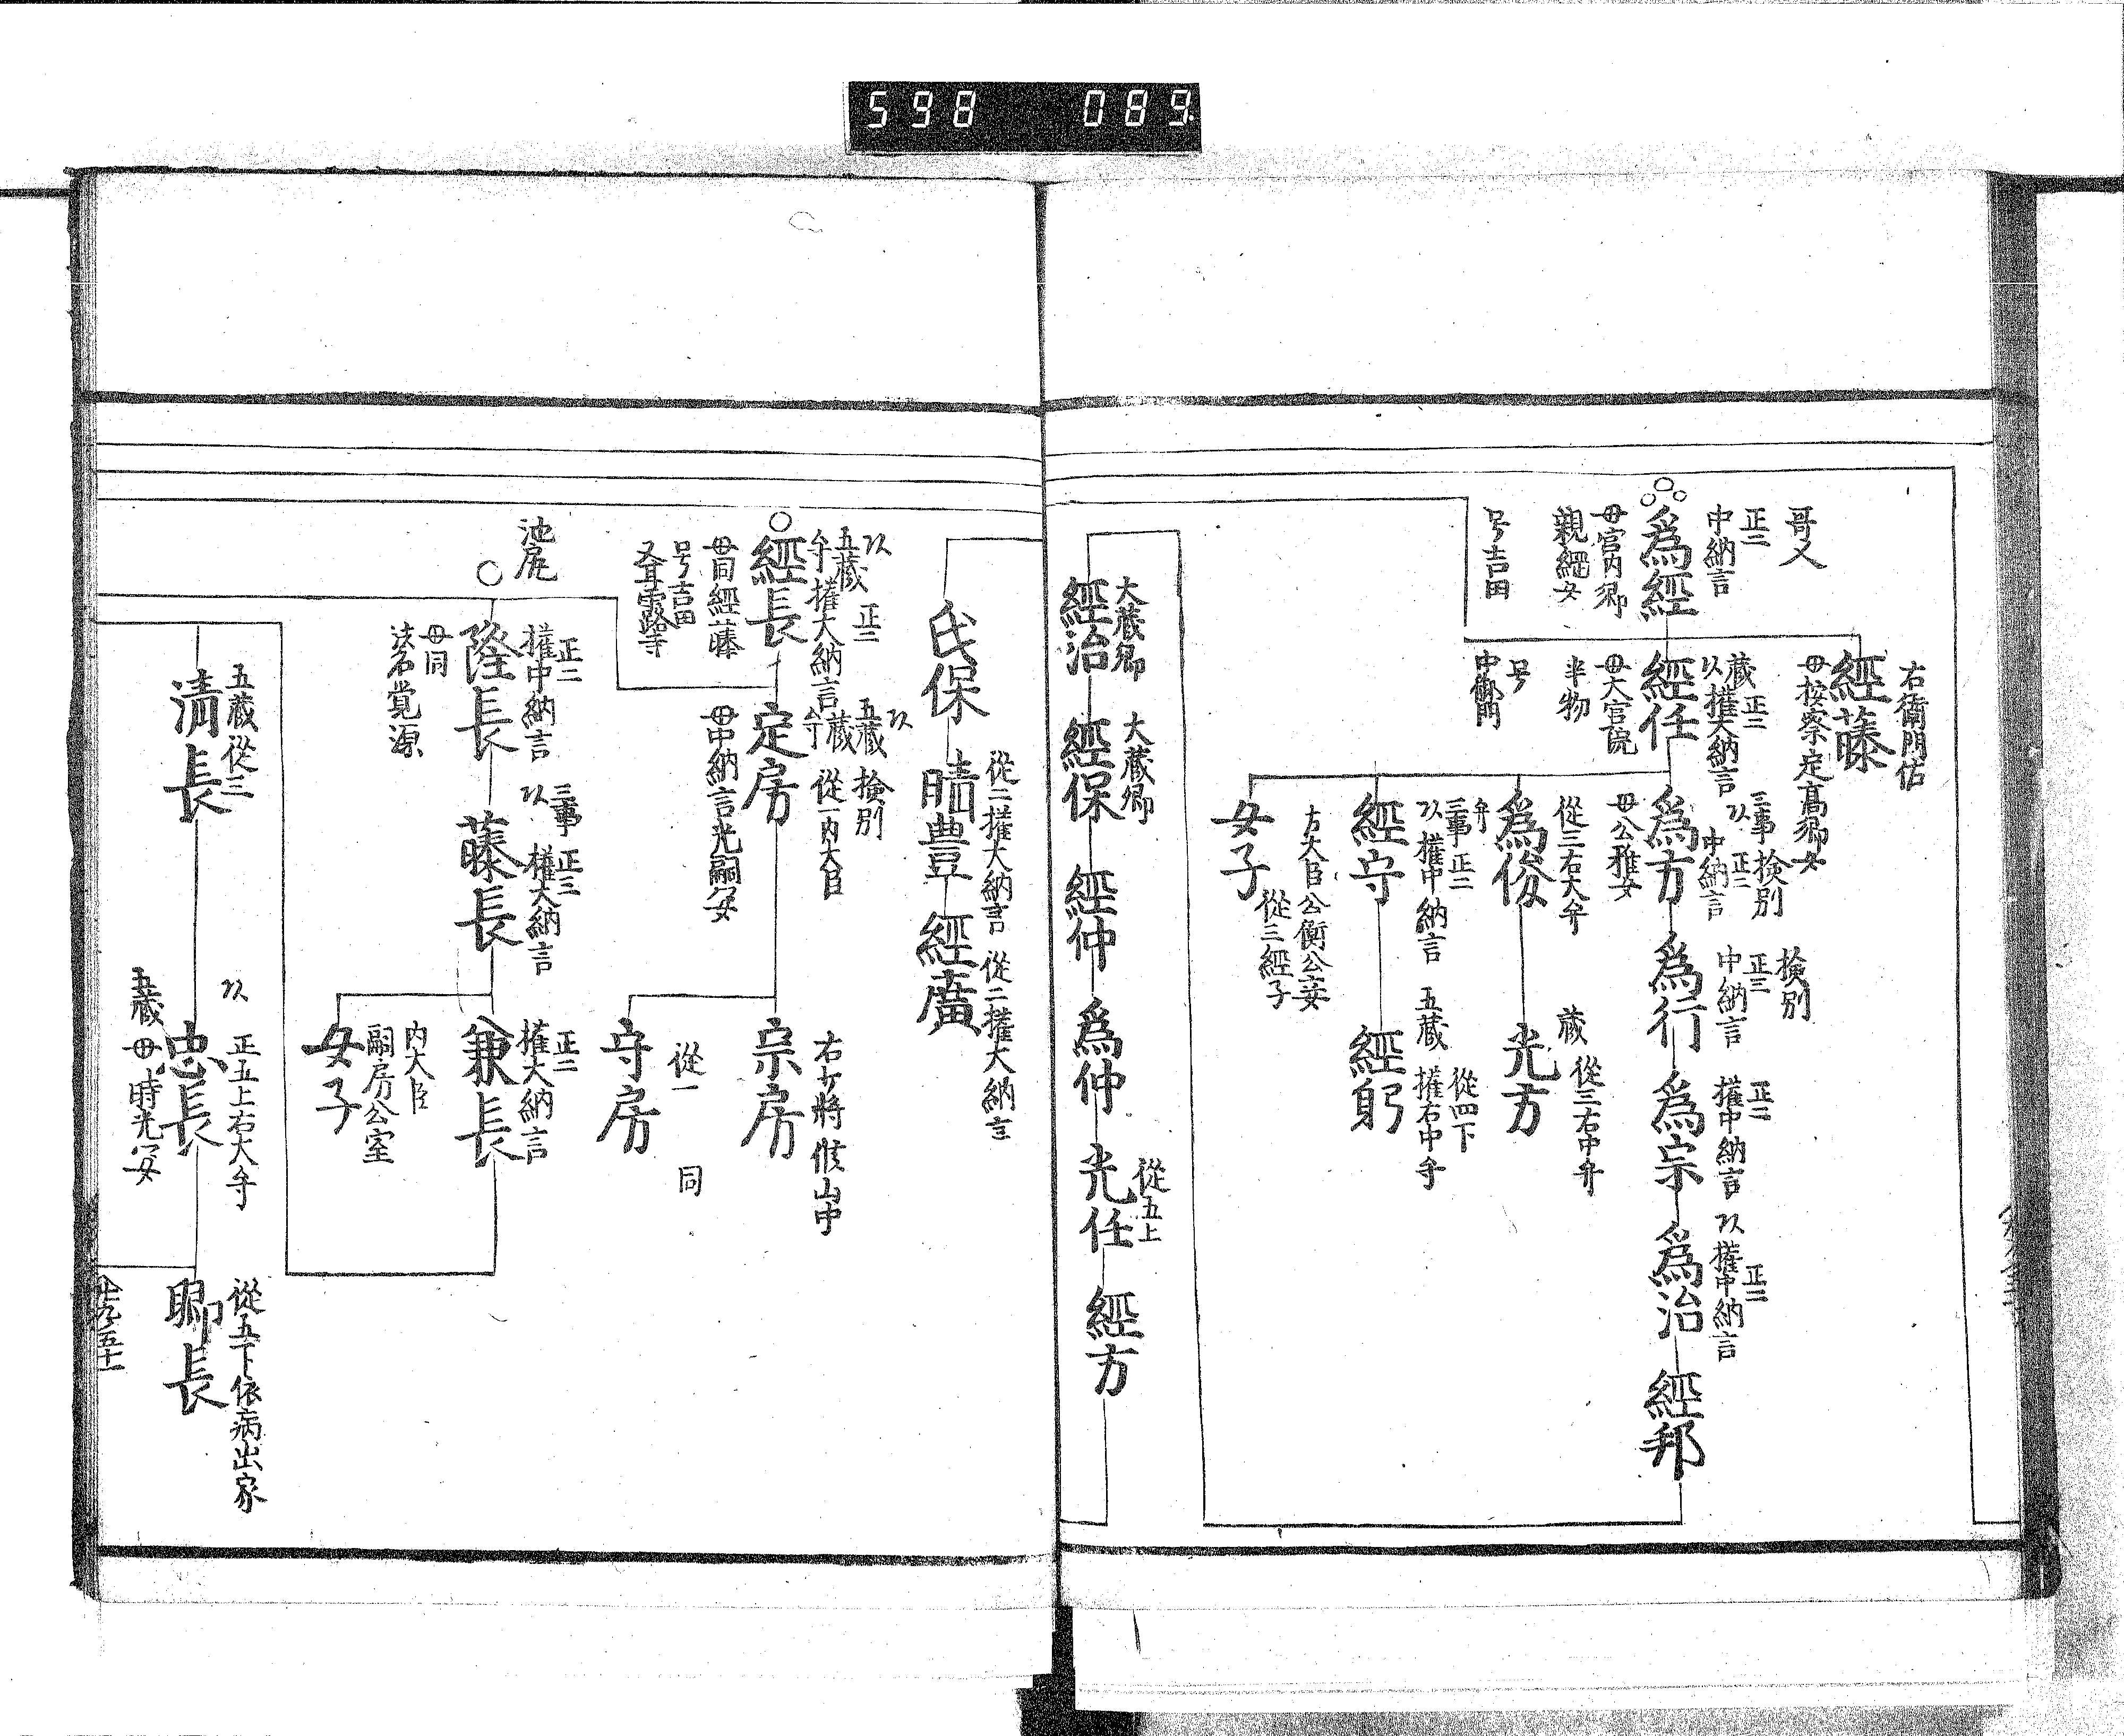 598 089
哥人
正二
中納言
爲經
母宮内卿
親經女
号吉田
右衛門佐
經藤
母按察定高卿女
蔵 正二
以權大納言
經任
母大宮院
半物
号
中御門
三事 檢別
以 正二
中納言
爲方
母公雅女
檢別
正三
中納言
爲行
正二
權中納言
爲宗
正二
以權中納言
爲治
經邦
從三右大弁
爲俊
蔵 從三右中弁
光方
弁
三事 正二
以權中納言
經守
從四下
五蔵 權右中弁
經躬
女子
從三經子
大蔵卿
經治
大蔵卿
經保
經仲
爲仲
從五上
光任
經方
氏保
從二權大納言
晴豊
從二權大納言
經廣
以
五蔵 正二
弁 權大納言
經長
母同經藤
号吉田
又甘露寺
以
五蔵 檢別
弁蔵 從一内大臣
定房
母中納言光嗣女
右少將 候山中
宗房
從一 同
守房
池尻
正二
權中納言
隆長
母同
法名覚源
三事 正三
以 權大納言
藤長
正二
權大納言
兼長
女子
内大臣
嗣房公室
五蔵 從三
清長
以 正五上右大弁
忠長
五蔵 母時光女
從五下依病出家
卿長